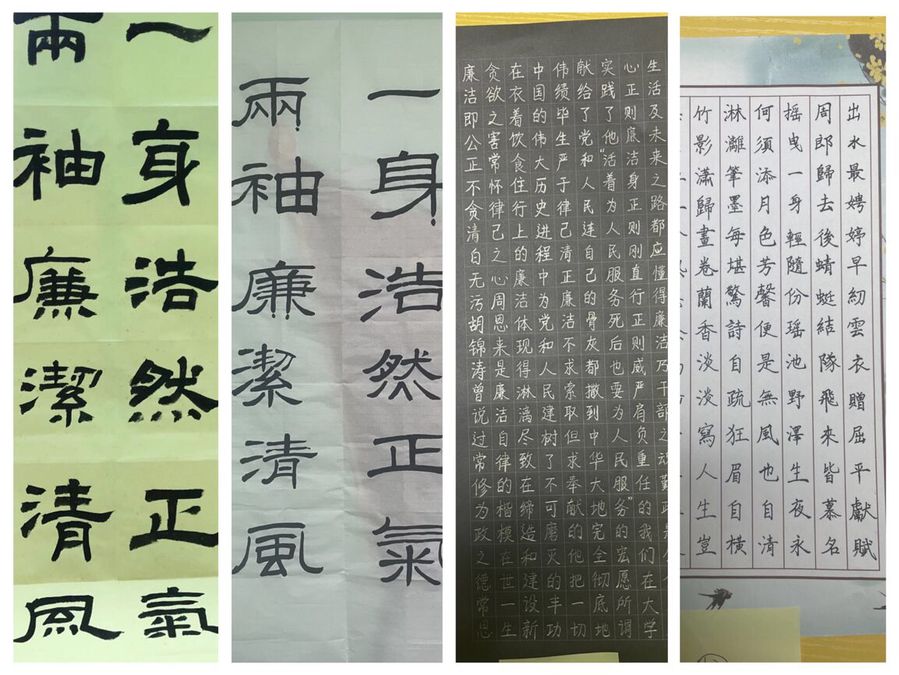 一身浩然正氣
兩袖廉潔清風
一身浩然正氣
兩袖廉潔清風
廉洁即公正不贪清白无污胡锦涛曾说过常修为政之德常思
贪欲之害常怀律己之心周恩来是廉洁自律的楷模在世一生
在衣着饮食住行上的廉洁体现得淋漓尽致在缔造和建设新
中国的伟大历史进程中为党和人民建树了不可磨灭的丰功
伟绩毕生严于律己清正廉洁不求索取但求奉献的他把一切
献给了党和人民连自己的骨灰都撒到中华大地完全彻底地
实践了他“活着为人民服务死后也要为人民服务”的宏愿所谓
心正则廉洁身正则刚直行正则威严肩负重任的我们在大学
生活及未来之路都应懂得廉洁乃干部之
出水最娉婷早紉雲衣贈屈平獻賦
周郎歸去後蜻蜓結隊飛來皆慕名
搖曳一身輕隨份瑤池野澤生夜永
何須添月色芳馨便是無風也自清
淋灕筆墨每堪驚詩自疏狂眉自橫
竹影瀟歸畫卷蘭香淡淡寫人生豈